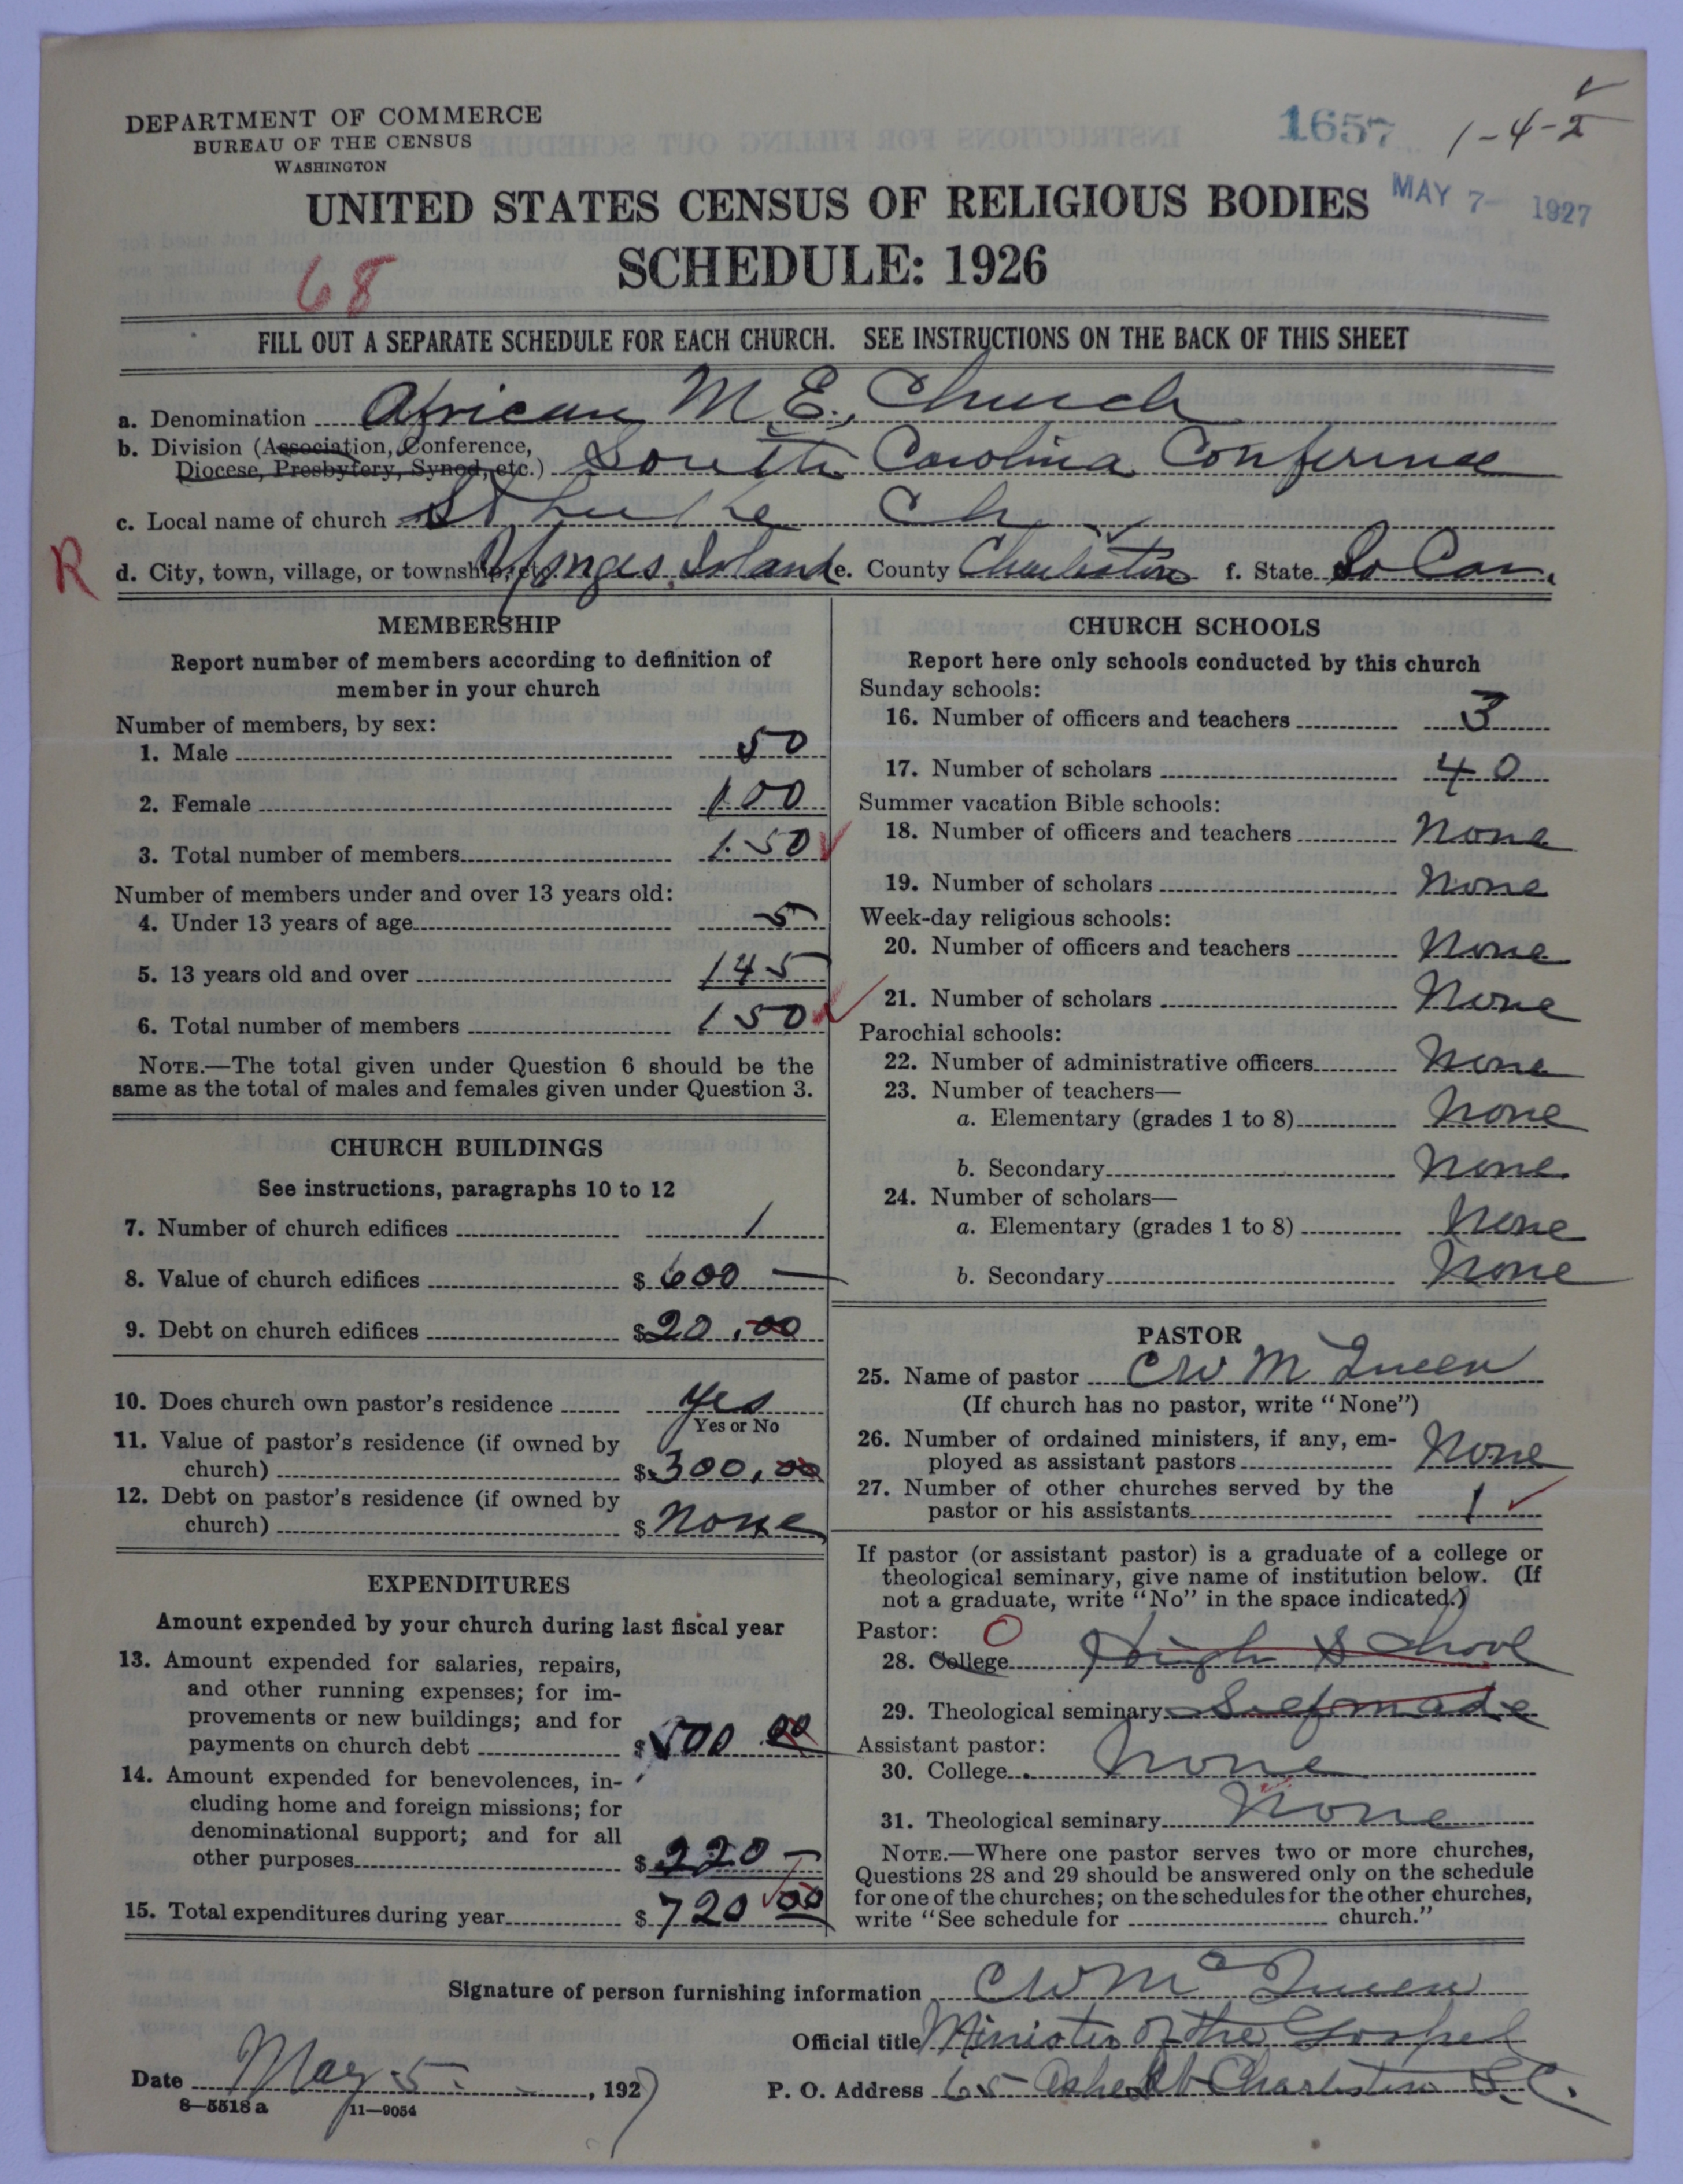 DEPARTMENT OF COMMERCE
BUREAU OF THE CENSUS
WASHINGTON
1657 1-4-2
UNITED STATES CENSUS OF RELIGIOUS BODIES
MAY 7- 1927
SCHEDULE: 1926
68
FILL OUT A SEPARATE SCHEDULE FOR EACH CHURCH. SEE INSTRUCTIONS ON THE BACK OF THIS SHEET
a. Denomination African M. E., Church
b. Division (Association, Conference,
Diocese, Presbytery, Synod, etc.) South Carolina Conference
c. Local name of church St Luke Ch
R
d. City, town, village, or township, etc. Yonges Island e. County Charleston f. State So Car.
MEMBERSHIP
Report number of members according to definition of
member in your church
Number of members, by sex:
1. Male 50
2. Female 100
3. Total number of members 150
Number of members under and over 13 years old:
4. Under 13 years of age 5
5. 13 years old and over 145
6. Total number of members 150
NOTE.—The total given under Question 6 should be the
same as the total of males and females given under Question 3.
CHURCH BUILDINGS
See instructions, paragraphs 10 to 12
7. Number of church edifices 1
8. Value of church edifices $ 600 —
9. Debt on church edifices $ 20.00
10. Does church own pastor's residence yes
Yes or No
11. Value of pastor's residence (if owned by
church) $ 300.00
12. Debt on pastor's residence (if owned by
church) $ None
EXPENDITURES
Amount expended by your church during last fiscal year
13. Amount expended for salaries, repairs,
and other running expenses; for im-
provements or new buildings; and for
payments on church debt $ 500 00
14. Amount expended for benevolences, in-
cluding home and foreign missions; for
denominational support; and for all
other purposes $ 220 —
15. Total expenditures during year $ 720 00
CHURCH SCHOOLS
Report here only schools conducted by this church
Sunday schools:
16. Number of officers and teachers 3
17. Number of scholars 40
Summer vacation Bible schools:
18. Number of officers and teachers None
19. Number of scholars None
Week-day religious schools:
20. Number of officers and teachers None
21. Number of scholars None
Parochial schools:
22. Number of administrative officers None
23. Number of teachers—
a. Elementary (grades 1 to 8) None
b. Secondary None
24. Number of scholars—
a. Elementary (grades 1 to 8) None
b. Secondary None
PASTOR
25. Name of pastor C W McQueen
(If church has no pastor, write "None")
26. Number of ordained ministers, if any, em-
ployed as assistant pastors None
27. Number of other churches served by the
pastor or his assistants 1
If pastor (or assistant pastor) is a graduate of a college or
theological seminary, give name of institution below. (If
not a graduate, write "No" in the space indicated.)
Pastor: O
28. College High School
29. Theological seminary Self made
Assistant pastor:
30. College None
31. Theological seminary None
NOTE.—Where one pastor serves two or more churches,
Questions 28 and 29 should be answered only on the schedule
for one of the churches; on the schedules for the other churches,
write "See schedule for church."
Signature of person furnishing information C W McQueen
Official title Minister of the Gospel
Date May 5, 1927
P. O. Address 65 Ashe St Charleston S. C.
8—5518 a 11—9054